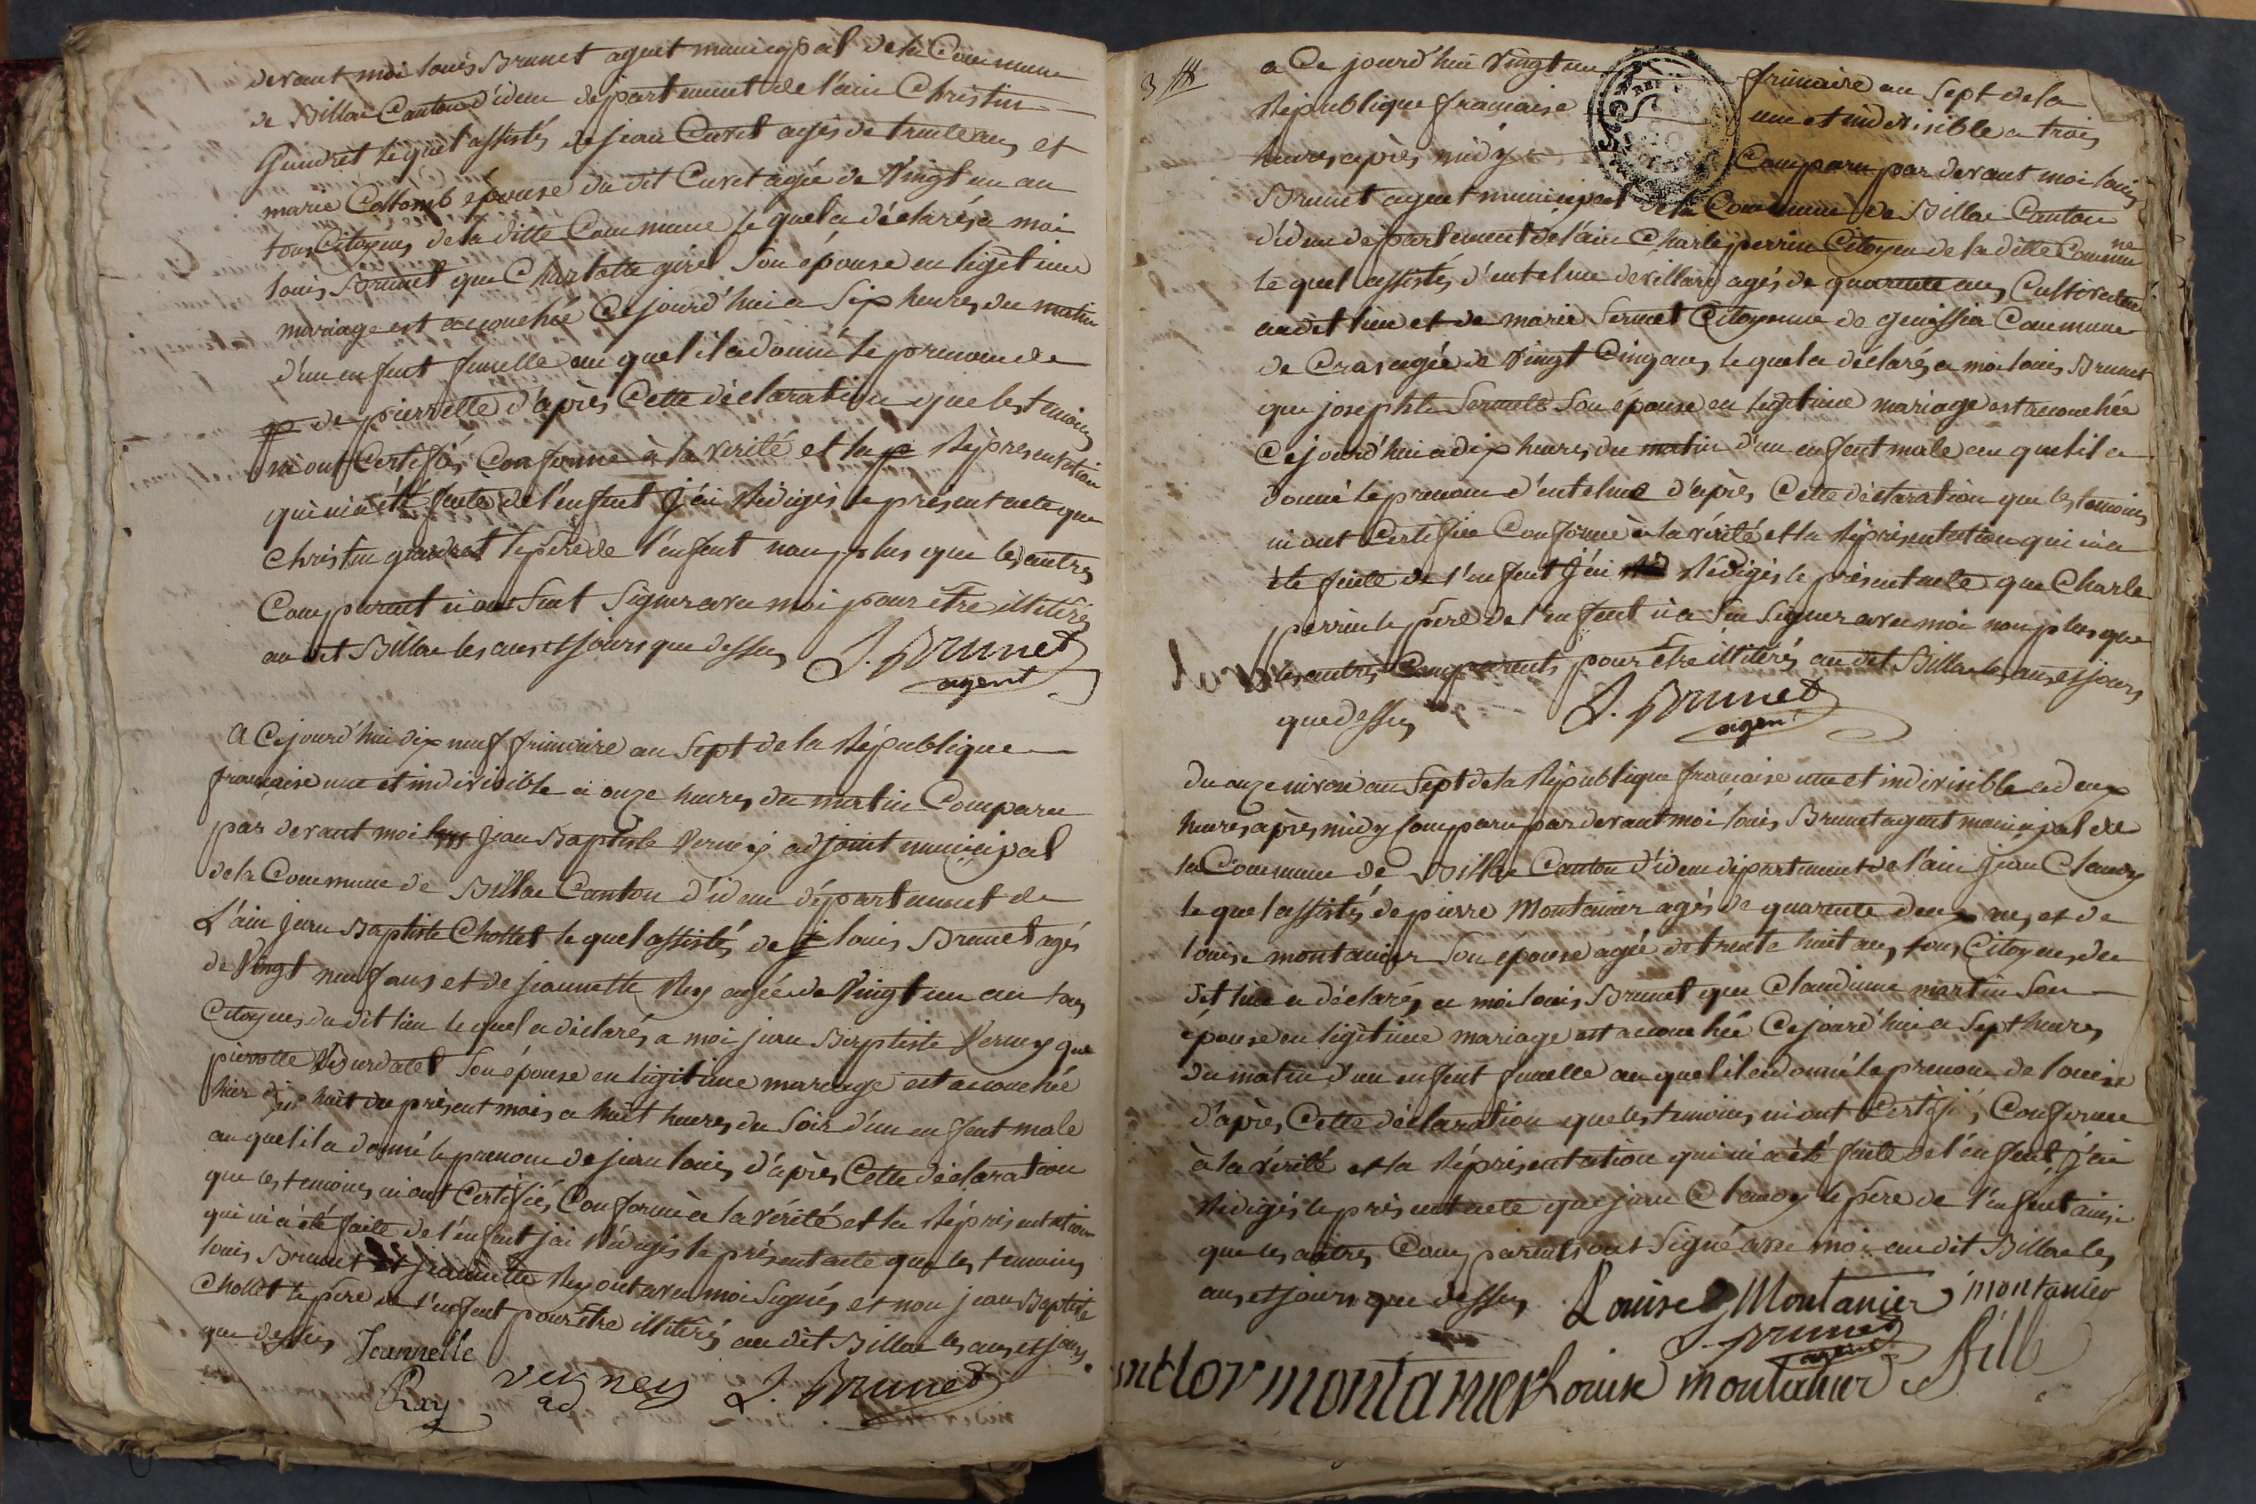 devant moi louis Brunet agent municipal de la Commune
de Billac Canton d'idem département de l'ain Christin
Gundret lequel assistés de jean Curet agés de trente ans et
marie Collomb épouse du dit Curet agée de Vingt un an
tous Citoyens de la ditte Commune le quel a déclarés a moi
louis Brunet que Charlotte giret son épouse en légitime
mariage est accouchée Cejourd'hui a six heures du matin
d'un enfent femelle au quel il a donné le prenom de
de pierrette d'après Cette déclaration que les temoins
m'ont Certifiés Conforme à la verité et la Représentation
qui m'a été faite de l'enfent j'ai Rédigés le présent acte que
Christin gundret le père de l'enfent non plus que les autres
Comparent n'ont Sut Signer avec moi pour être illitérés
au dit Billac les ans et jours que dessus L. Brunet
agent
A Cejourd'hui dix neuf frimaire an Sept de la République
française une et indivisible a onze heures du matin Comparu
par devant moi jean Baptiste Verney adjoint municipal
de la Commune de Billac Canton d'idem département de
L'ain jean Baptiste Chollet le quel assistés de louis Brunet agés
de Vingt neuf ans et de jeannette Rey agée de Vingt un an tous
Citoyens du dit lieu le quel a déclarés a moi jean Baptiste Verney que
pierrette Bourdalet Son épouse en légitime mariage est accouchée
hier dix huit du présent mois a huit heures du Soir d'un enfent male
au quel il a donné le prenom de jean louis d'après Cette déclaration
que les temoins m'ont Certifiés Conforme à la vérité et la Représentation
qui m'a été faite de l'enfent j'ai Rédigés le présent acte que les temoins
louis Brunet et jeannette Rey ont avec moi Signés et non jean Baptiste
Chollet le père de l'enfent pour être illitérés au dit Billac les ans et jours
que dessus Jeannette
Rey Verney L. Brunet
ad
3
a Ce jourd'hui Vingt un frimaire an Sept de la
République française une et indivisible a trois
heures après midy Comparu par devant moi louis
Brunet agent municipal de la Commune de Billac Canton
d'idem departement de l'ain Charle perrin Citoyen de la ditte Commune
le quel assistés d'entelme devillars agés de quarente ans Cultivateur
au dit lieu et de marie Sermet Citoyenne de genissia Commune
de Cras agée de Vingt Cinq ans le quel a déclarés a moi louis Brunet
que josephte Sermet Son épouse en légitime mariage est accouchée
Cejourd'hui a dix heures du matin d'un enfent male au quel il a
donné le prenom d'entelme d'après Cette déclaration que les temoins
m'ont Certifiée Conforme à la vérité et la Représentation qui m'a
été faitte de l'enfent j'ai Rédigés le présent acte que Charle
perrin le père de l'enfent n'a Su Signer avec moi non plus que
les autres Comparents pour être illitérés au dit Billac les ans et jours
que dessus L. Brunet
agent
du onze nivose an Sept de la République française une et indivisible a deux
heures après midy Comparu par devant moi louis Brunet agent municipal de
la Commune de Billac Canton d'idem département de l'ain jean Claudy
le quel assistés de pierre Montanier agés de quarente deux ans et de
louise montanier Son epouse agée de trente huit ans tous Citoyens du
dit lieu a déclarés a moi louis Brunet que Claudinne martin Son
épouse en légitime mariage est accouchée Cejourd'hui a Sept heures
du matin d'un enfent femelle au quel il a donné le prenom de louise
d'après Cette déclaration que les temoins m'ont Certifiés Conforme
à la vérité et la Réprésentation qui m'a été faite de l'enfent j'ai
Rédigés le présent acte que jean Claudy le père de l'enfent ainsi
que les autres Comparents ont Signé avec moi au dit Billac les
ans et jours que dessus Louise Montanier montanier
L. Brunet
agent
montanier Louise montanier fille